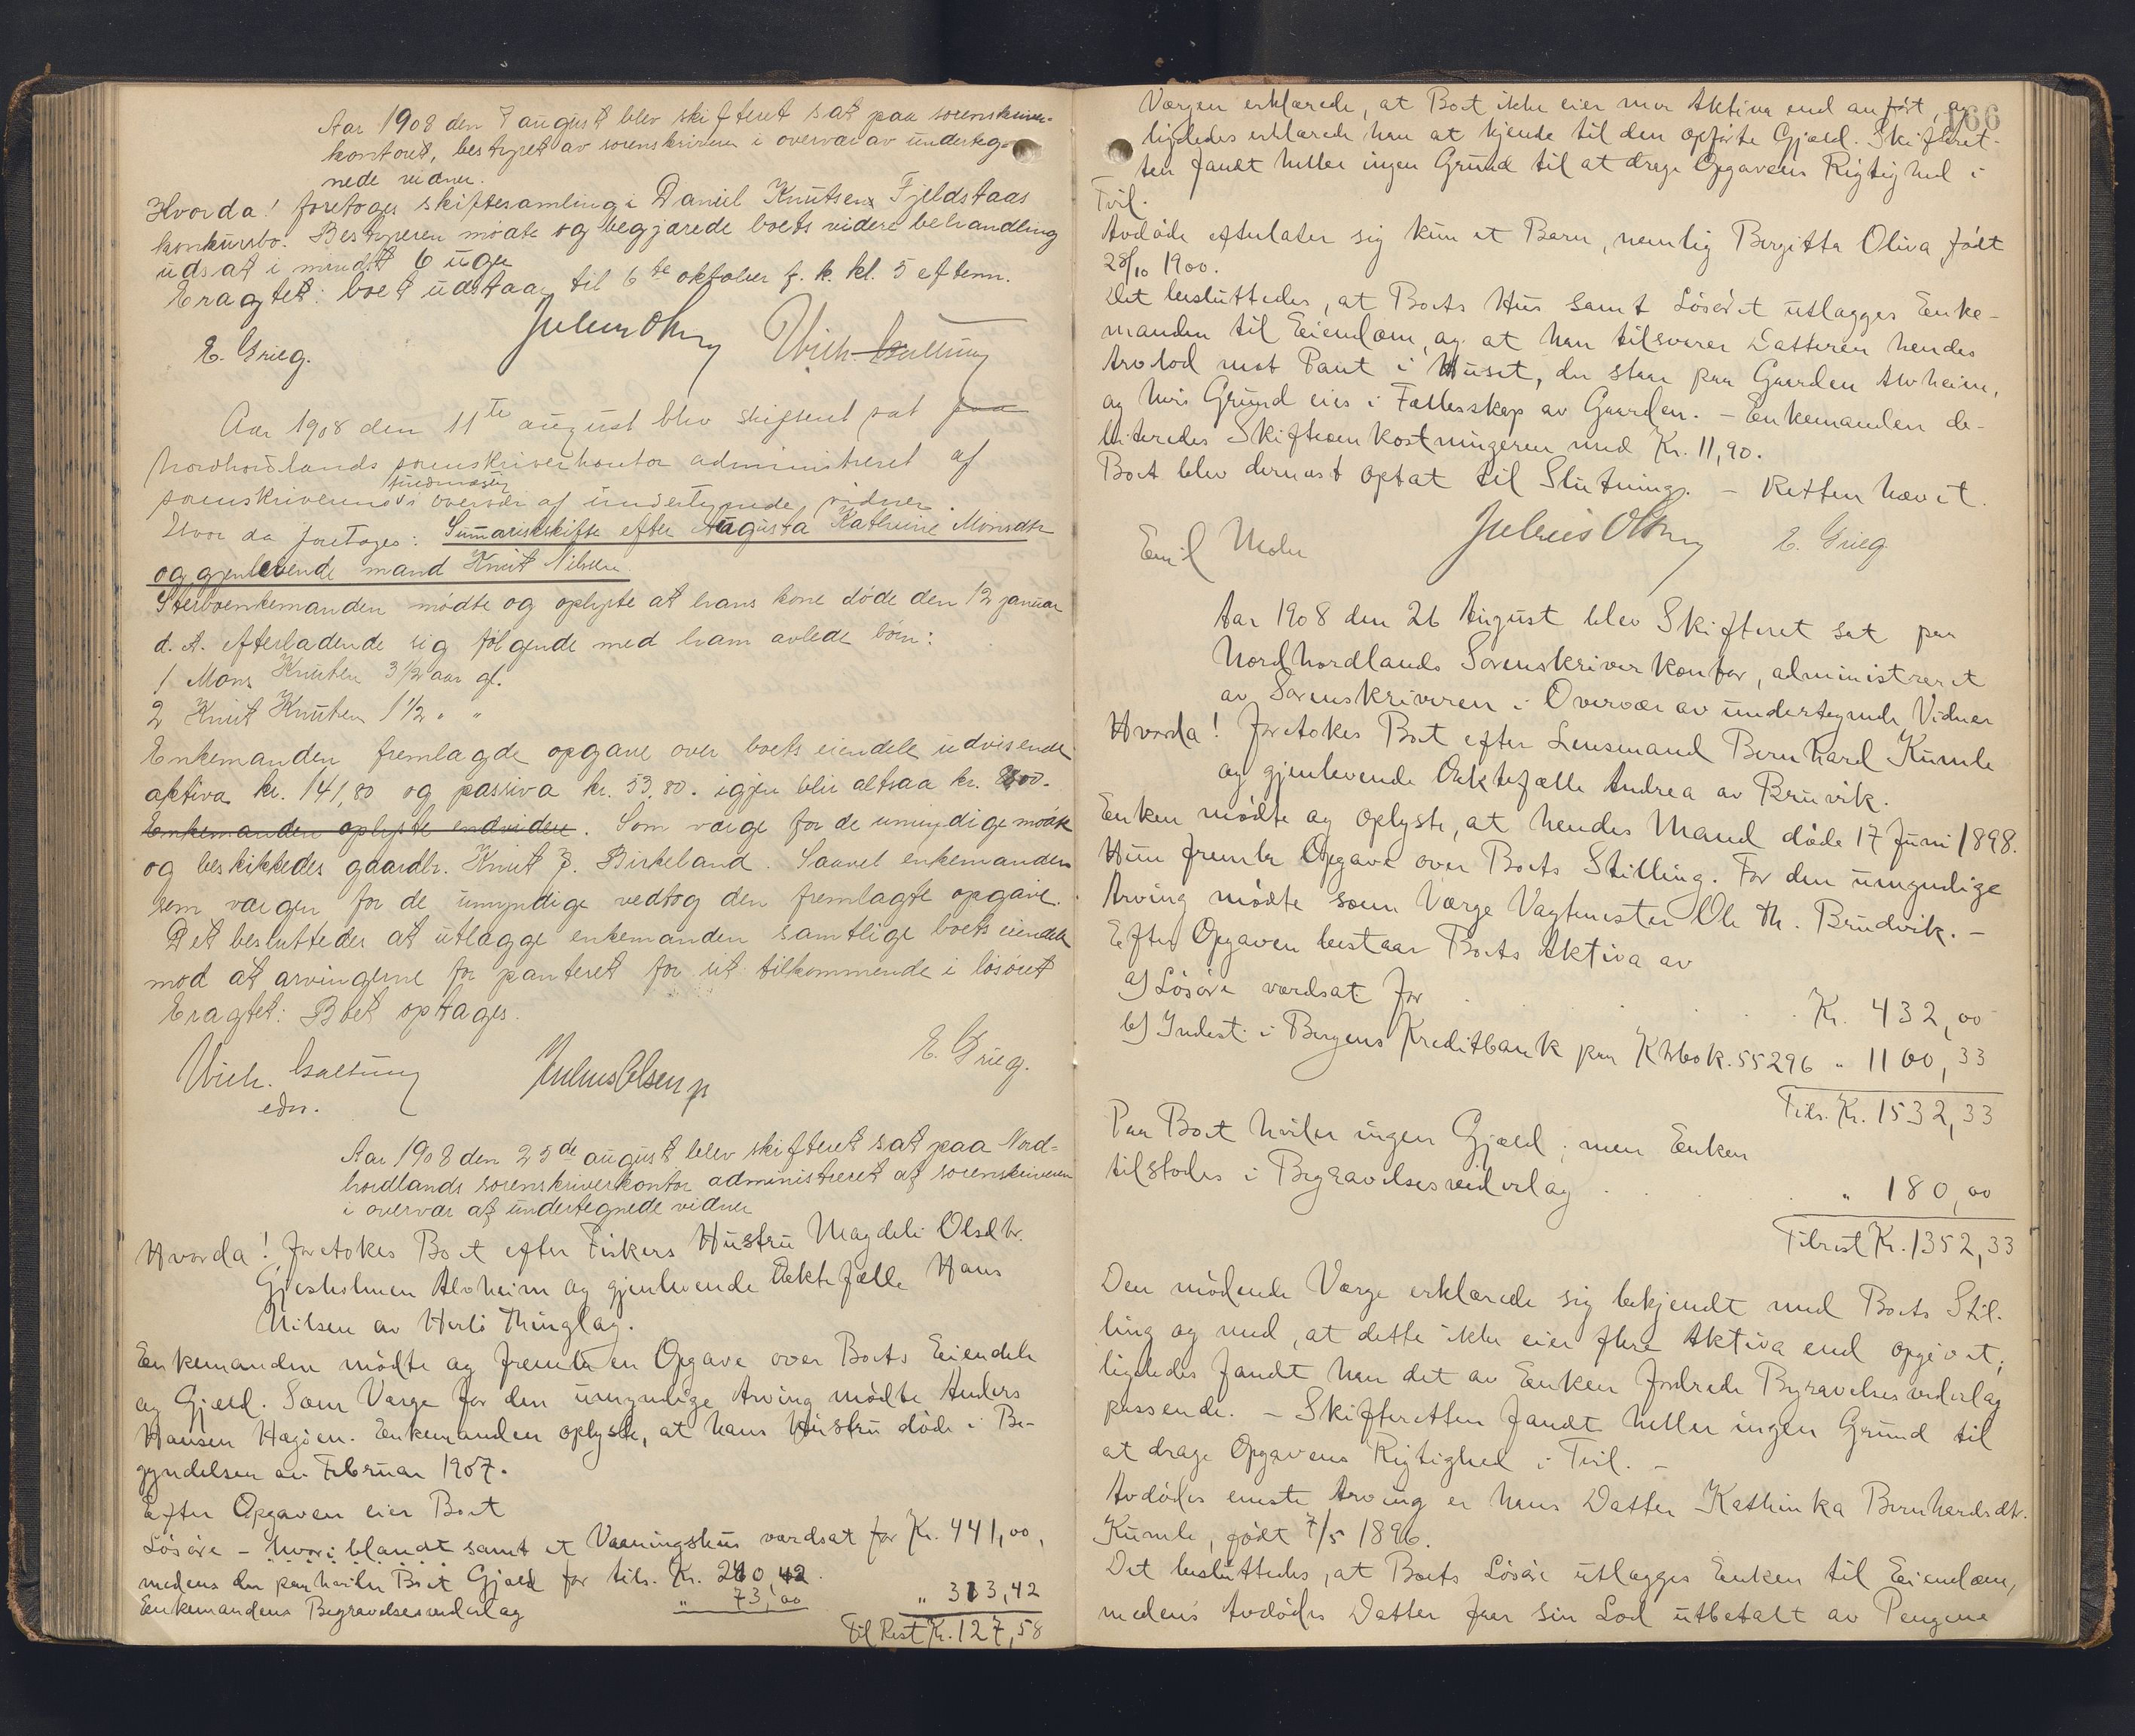 Aar 1908 den 7 august blev skifteret sat paa sorenskriver-
kontoret, bestyret av sorenskriveren i overvær av underteg-
nede vidner.
Hvorda! foretoges skiftesamling i Daniel Knutsen Fjeldstaas
konkursbo. Bestyreren mødte og begjærede boets videre behandling
udsat i mindst 6 uger
Eragtet: boet udstaar til 6te oktober f. k. kl. 5 efterm.
E. Grieg. Julius Olsen Wich. Galtung
Aar 1908 den 11te august blev skifteret sat paa
Nordhordlands sorenskriverkontor administreret af
sorenskriverens
fuldmægtig
i overvær af undertegnede vidner.
Hvor da foretoges: Summariskskifte efter Augusta Kathrine Monsdtr
og gjenlevende mand Knut Nilsen
Sterboenkemanden mødte og oplyste at hans kone døde den 12 januar
d. A. efterladende sig følgende med ham avlede børn:
1 Mons Knutsen 3 1/2 aar gl.
2 Knut Knutsen 1 1/2 " "
Enkemanden fremlagde opgave over boets eiendele udvisende
aktiva kr. 141,80 og passiva kr. 53,80. igjen blir altsaa kr.
Enkemanden oplyste endvidere. Som værge for de umyndige mødte
og beskikkedes gaardbr. Knut J. Birkeland. Saavel enkemanden
som værgen for de umyndige vedtog den fremlagte opgave.
Det besluttedes at utlægge enkemanden samtlige boets eiendele
mod at arvingerne før panteret for sit tilkommende i løsøret
Eragtet: Boet optages.
Wich. Galtung Julius Olsen E. Grieg.
edsv.
Aar 1908 den 25de august blev skifteret sat paa Nord-
hordlands sorenskriverkontor administreret af sorenskriveren
i overvær af undertegnede vidner
Hvorda! foretokes Boet efter Fiskers Hustru Magdeli Olsdtr.
Gjesholmen Alvheim og gjenlevende Ægtefælle Hans
Nilsen av Herlø Thinglag.
Enkemanden mødte og fremla en Opgave over Boets Eiendele
og Gjæld. Som Værge for den umyndige Arving mødte Anders
Hansen Hagøen. Enkemanden oplyste, at hans Hustru døde i Be-
gyndelsen av Februar 1907.
Efter Opgaven eier Boet
Løsøre – hvoriblandt samt et Vaaningshus værdsat for Kr. 441,00,
medens der paahviler Boet Gjæld for tils. Kr. 240,42
Enkemandens Begravelsesvederlag " 73,00 " 313,42
Til Rest Kr. 127,58
166
Værgen erklærede, at Boet ikke eier mer Aktiva end anført, og
ligeledes erklærede han at kjende til den opførte Gjæld. Skifteret-
ten fandt heller ingen Grund til at drage Opgavens Rigtighed i
Tvil.
Avdøde efterlater sig kun et Barn, nemlig Bergitta Oliva født
28/10 1900.
Det besluttedes, at Boets Hus samt Løsøret utlægges Enke-
manden til Eiendom, og at han tilsvarer Datteren hendes
Arvelod mot Pant i Huset, der staar paa Gaarden Alvheim,
og hvis Grund eies i Fællesskap av Gaarden. – Enkemanden de-
biteredes Skifteomkostningerne med Kr. 11,90.
Boet blev dernæst optat til Slutning. – Retten hævet.
Emil Mohr Julius Olsen E. Grieg
Aar 1908 den 26 August blev Skifteret sat paa
Nordhordlands Sorenskriverkontor, administreret
av Sorenskriveren i Overvær av undertegnede Vidner
Hvorda! foretokes Boet efter Lensmand Bernhard Kumle
og gjenlevende Ægtefælle Andrea av Bruvik.
Enken mødte og oplyste, at hendes Mand døde 17 Juni 1898.
Hun fremla Opgave over Boets Stilling. For den umyndige
Arving mødte som Værge Vagtmester Ole Th. Brudvik. –
Efter Opgaven bestaar Boets Aktiva av
a) Løsøre værdsat for Kr. 432,00
b) Indest. i Bergens Kreditbank paa Ktrbok. 55296 " 1100,33
Tils. Kr. 1532,33
Paa Boet hviler ingen Gjæld; men Enken
tilstodes i Begravelsesvederlag " 180,00
Tilrest Kr. 1352,33
Den mødende Værge erklærede sig bekjendt med Boets Stil-
ling og med, at dette ikke eier flere Aktiva end opgivet;
ligeledes fandt han det av Enken fordrede Begravelsesvederlag
passende. – Skifteretten fandt heller ingen Grund til
at drage Opgavens Rigtighed i Tvil. –
Avdødes eneste Arving er hans Datter Kathinka Bernhardsdtr.
Kumle, født 7/5 1896.
Det besluttedes, at Boets Løsøre utlægges Enken til Eiendom,
medens Avdødes Datter faar sin Lod utbetalt av Pengene